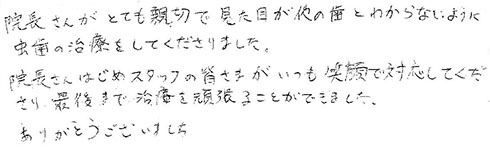 院長さんがとても親切で見た目が他の歯とわからないように
虫歯の治療をしてくださりました。
院長さんはじめスタッフの皆さまがいつも笑顔で対応してくだ
さり最後まで治療を頑張ることができました。
ありがとうございました